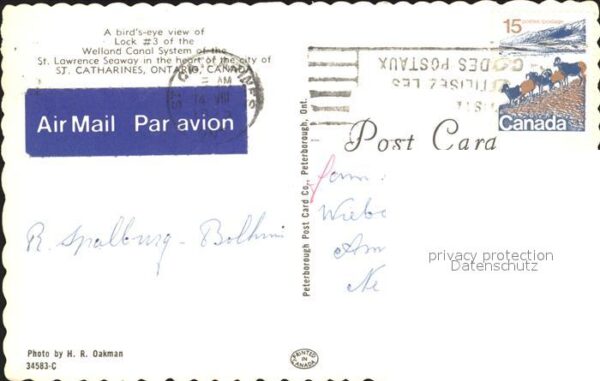 A bird's-eye view of
Lock #3 of the
Welland Canal System of the
St. Lawrence Seaway in the heart of the city of
ST. CATHARINES, ONTARIO, CANADA
AirMail Par avion
15
postes postage
Canada
AM
14 VIII
CODES POSTAUX
UTILISEZ LES
Post Card
Peterborough Post Card Co., Peterborough, Ont.
R. Spalburg - Bolhuis
Fam.
Wiebo
Am
Ne
privacy protection
Datenschutz
Photo by H. R. Oakman
34583-C
PRINTED
IN
CANADA